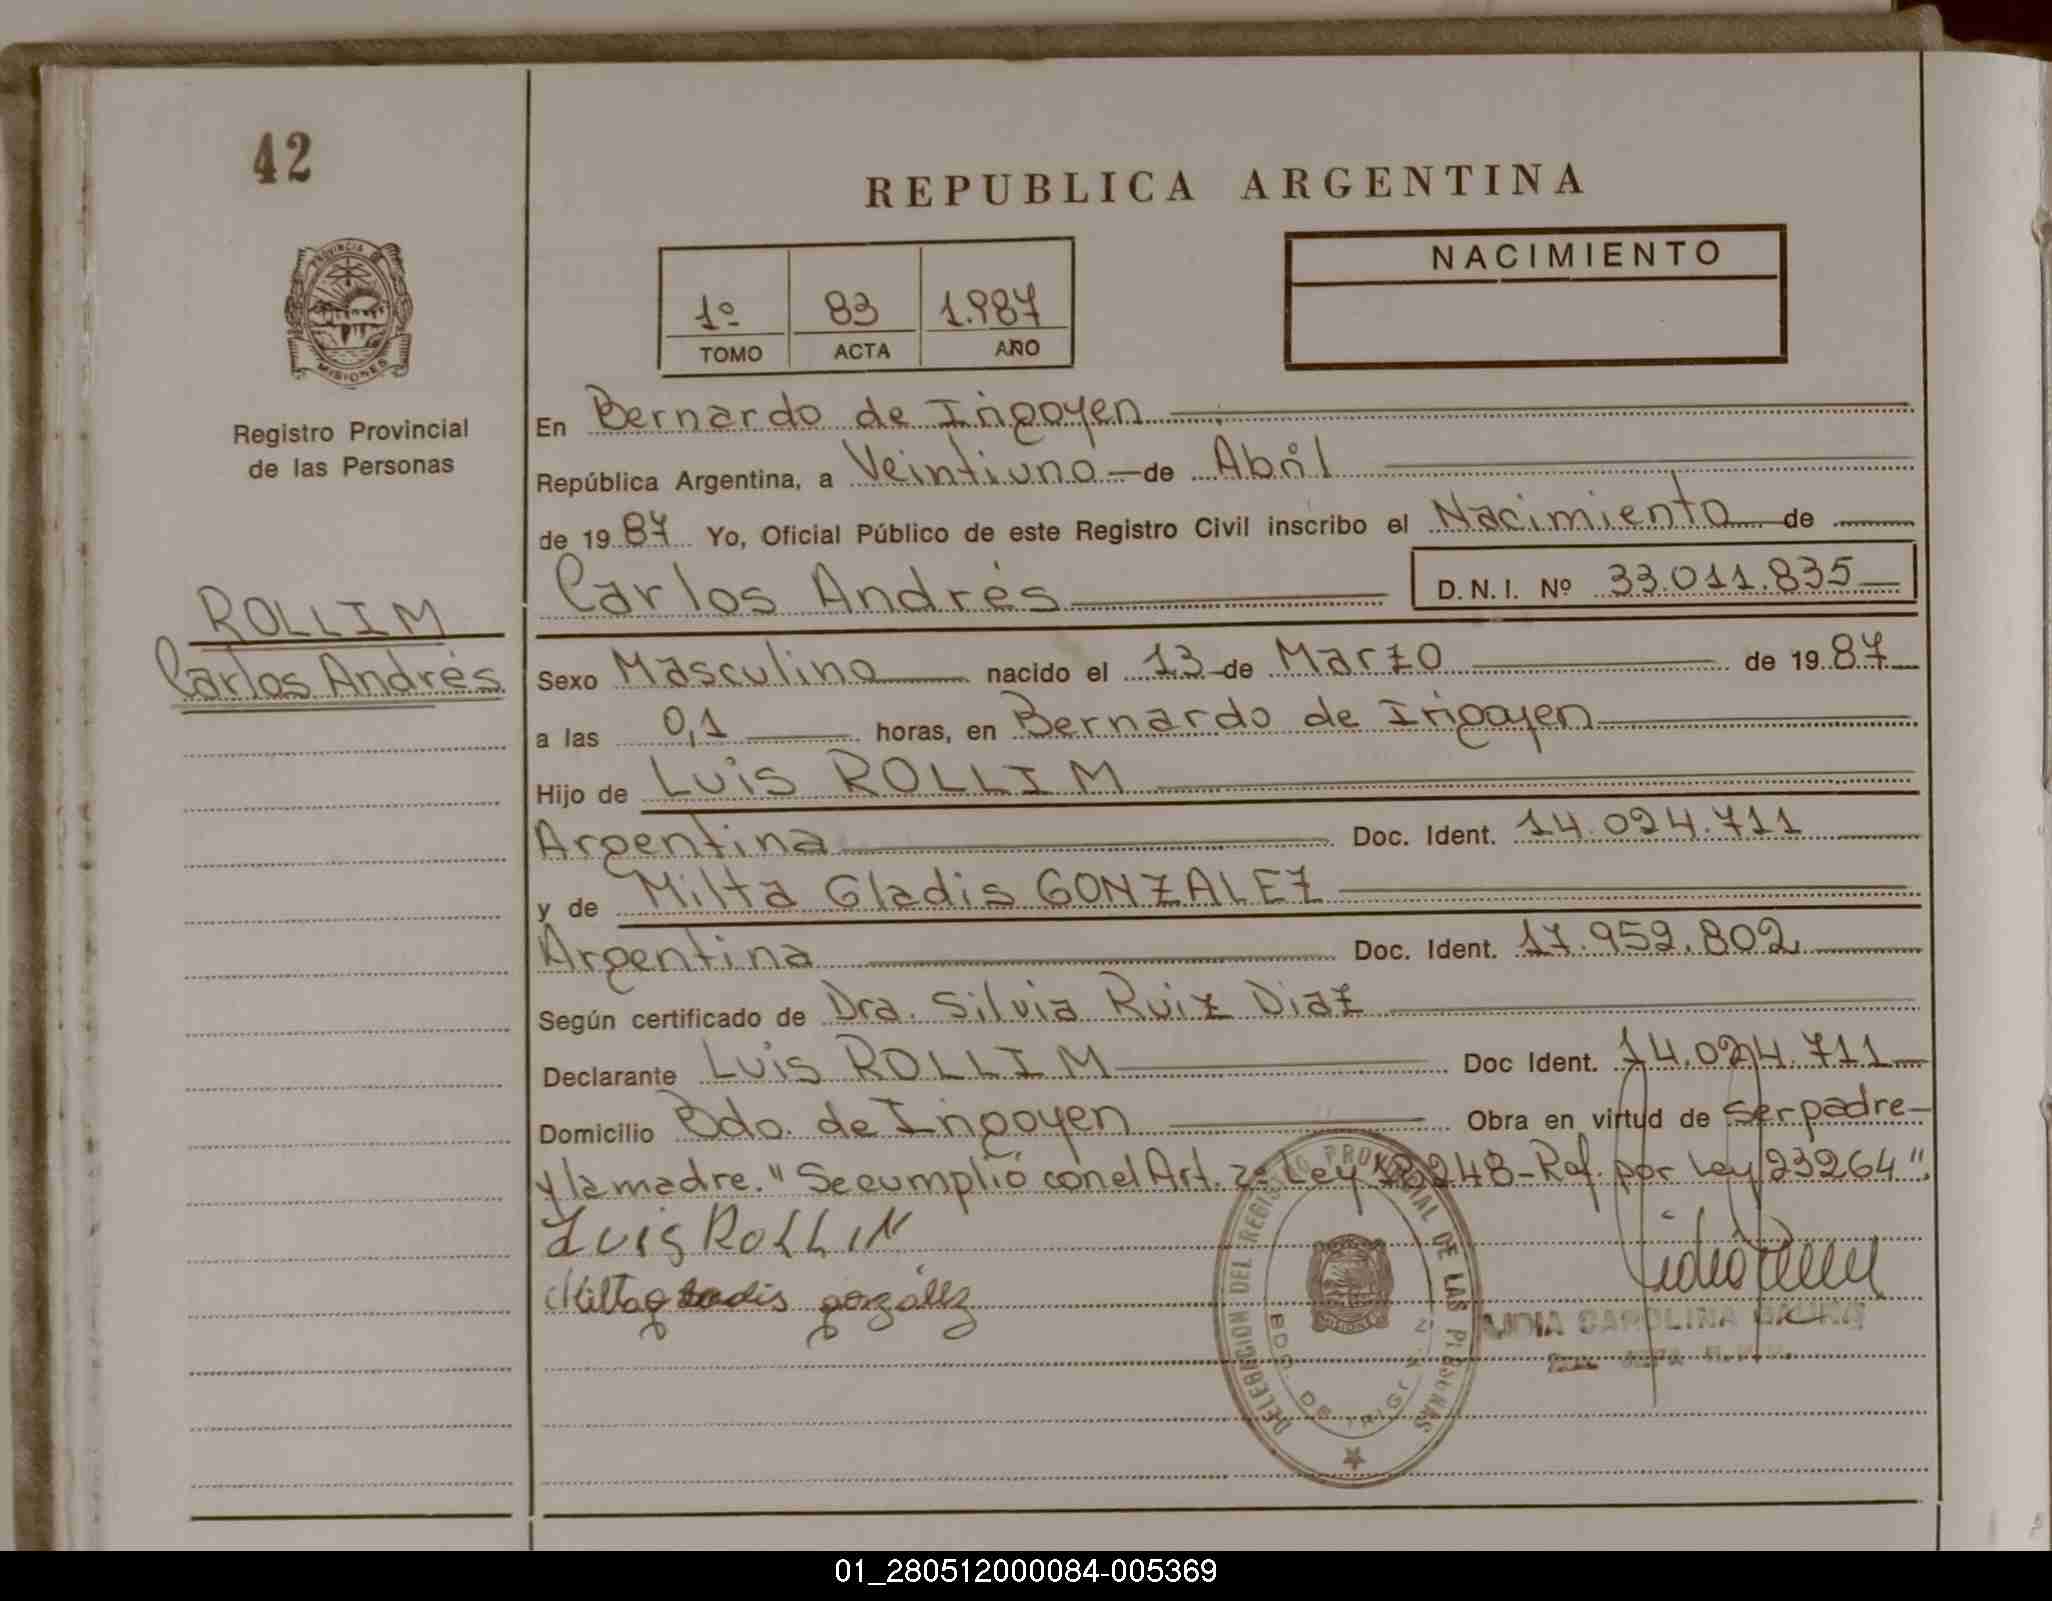 42
REPUBLICA ARGENTINA
PROVINCIA DE
MISIONES
Registro Provincial
de las Personas
1º 83 1.987
TOMO ACTA AÑO
NACIMIENTO
En Bernardo de Irigoyen
República Argentina, a Veintiuno de Abril
de 1987 Yo, Oficial Público de este Registro Civil inscribo el Nacimiento de
Carlos Andrés D.N.I. Nº 33.011.835
ROLLIM
Carlos Andrés
Sexo Masculino nacido el 13 de Marzo de 1987
a las 0,1 horas, en Bernardo de Irigoyen
Hijo de Luis ROLLIM
Argentina Doc. Ident. 14.024.711
y de Milta Gladis GONZALEZ
Argentina Doc. Ident. 17.952.802
Según certificado de Dra. Silvia Ruiz Diaz
Declarante Luis ROLLIM Doc Ident. 14.024.711
Domicilio Bdo. de Irigoyen Obra en virtud de ser padre
y la madre. "Se cumplió con el Art. 2º Ley 18248-Ref. por Ley 23264".
Luis RoLLiM
Milta gladis gonzález
DELEGACION DEL REGISTRO PROVINCIAL DE LAS PERSONAS
BDO. DE IRIGOYEN
LIDIA CAROLINA
01_280512000084-005369